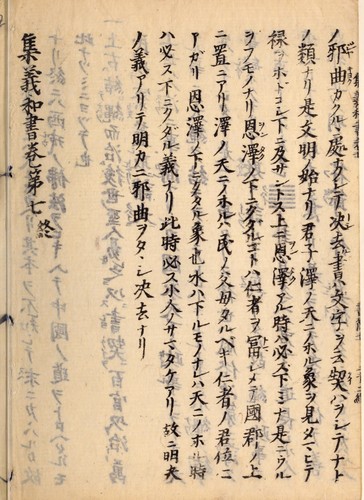 ノ邪曲カクレ處ナクシテ決去書ハ文字ヲ云契ハワシテナト
ノ類ナリ是文明ノ始ナリ君子澤ノ天ニノホル象ヲ見テ
祿ヲホトコシ下ニ及サントス上ニ恩澤アル時ハ必ス下ミナ是ニウル
ヲフモノナリ恩澤下ニクタルコトハ仁者ヲ冨シメテ國郡ノ上
ニ置ニアリ澤ノ天ニノホルハ民ノ父母タルヘキ仁者ノ君位ニ
アガリ恩澤ノ下ニクタル象也水ハ下ルモノナレハ天ニノホル時
ハ必ス下ニクダル義ナリ此時必ス小人ノサマタケアリ故ニ明夬
ノ義アリテ明カニ邪曲ヲタヽシ決去ナリ
集義和書卷第七終